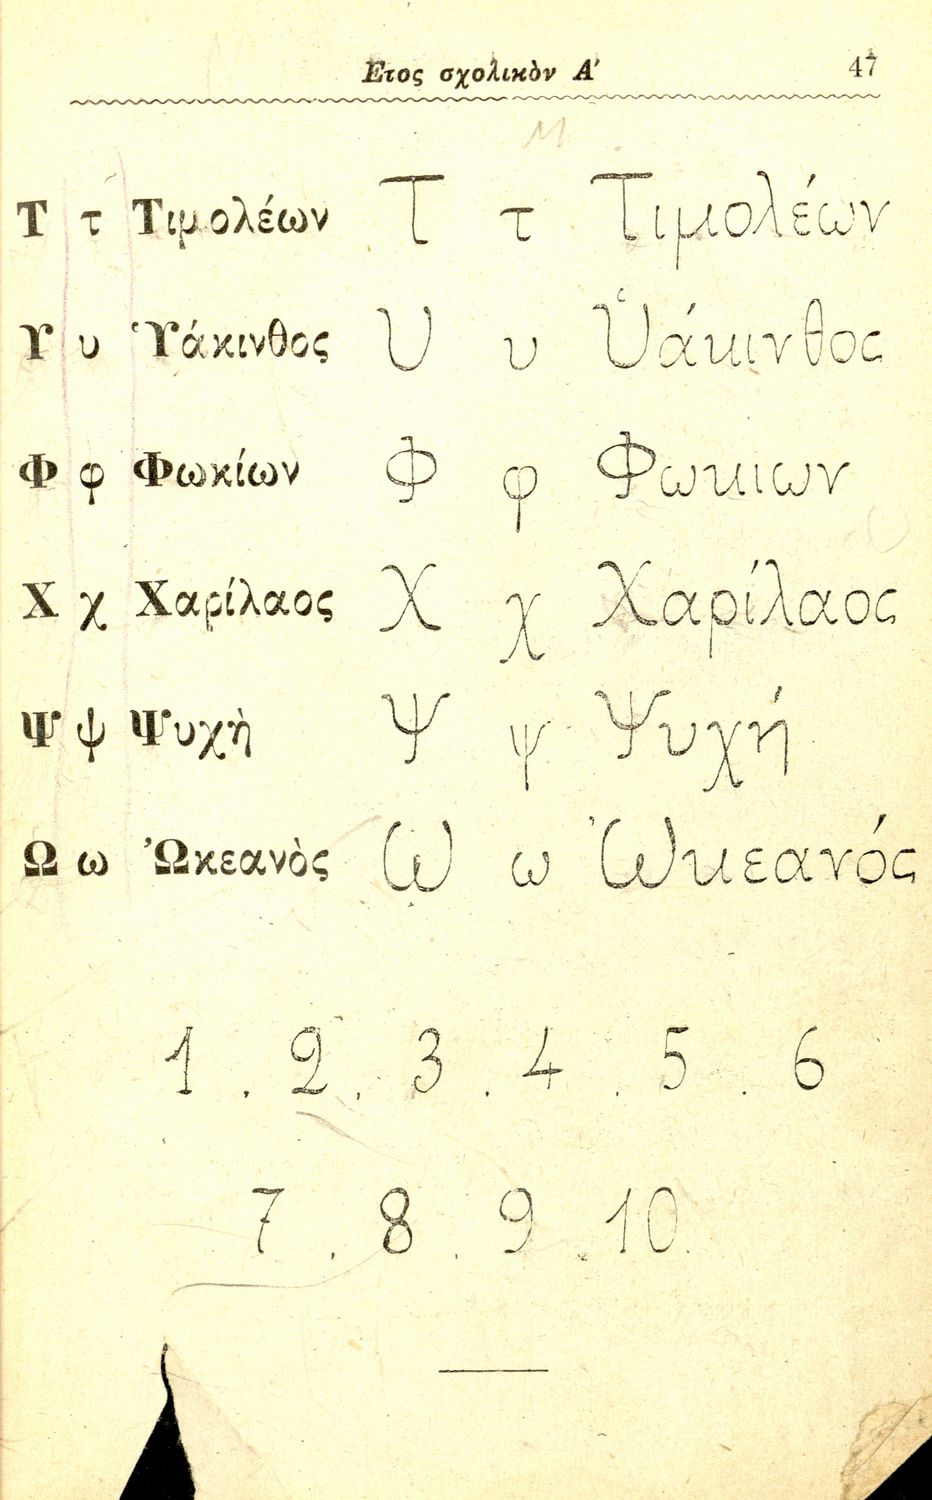 Ετος σχολικὸν Α' 47
Τ τ Τιμολέων Τ τ Τιμολέων
ϒ υ Ὑάκινθος Υ υ Ὑάκινθος
Φ φ Φωκίων Φ φ Φωκιων
Χ χ Χαρίλαος Χ χ Χαρίλαος
Ψ ψ Ψυχὴ Ψ ψ Ψυχή
Ω ω Ὠκεανὸς Ω ω Ὠκεανός
1 . 2 . 3 . 4 . 5 . 6
7 . 8 . 9 . 10.